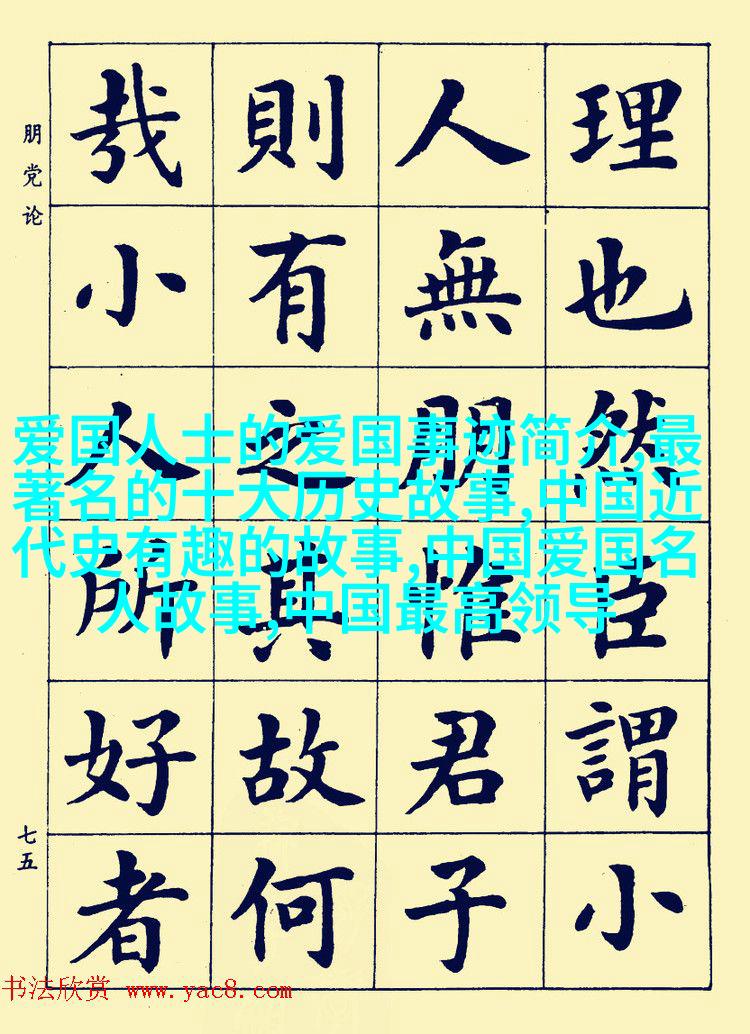 理也然臣謂小
人無朋惟君子
則有之其故何
哉小人所好者
朋党论
七五
爱国人士的爱国事迹简介,最
著名的十大历史故事,中国近
代史有趣的故事,中国爱国名
人故事,中国最高领导
书法欣赏 www.yac8.com